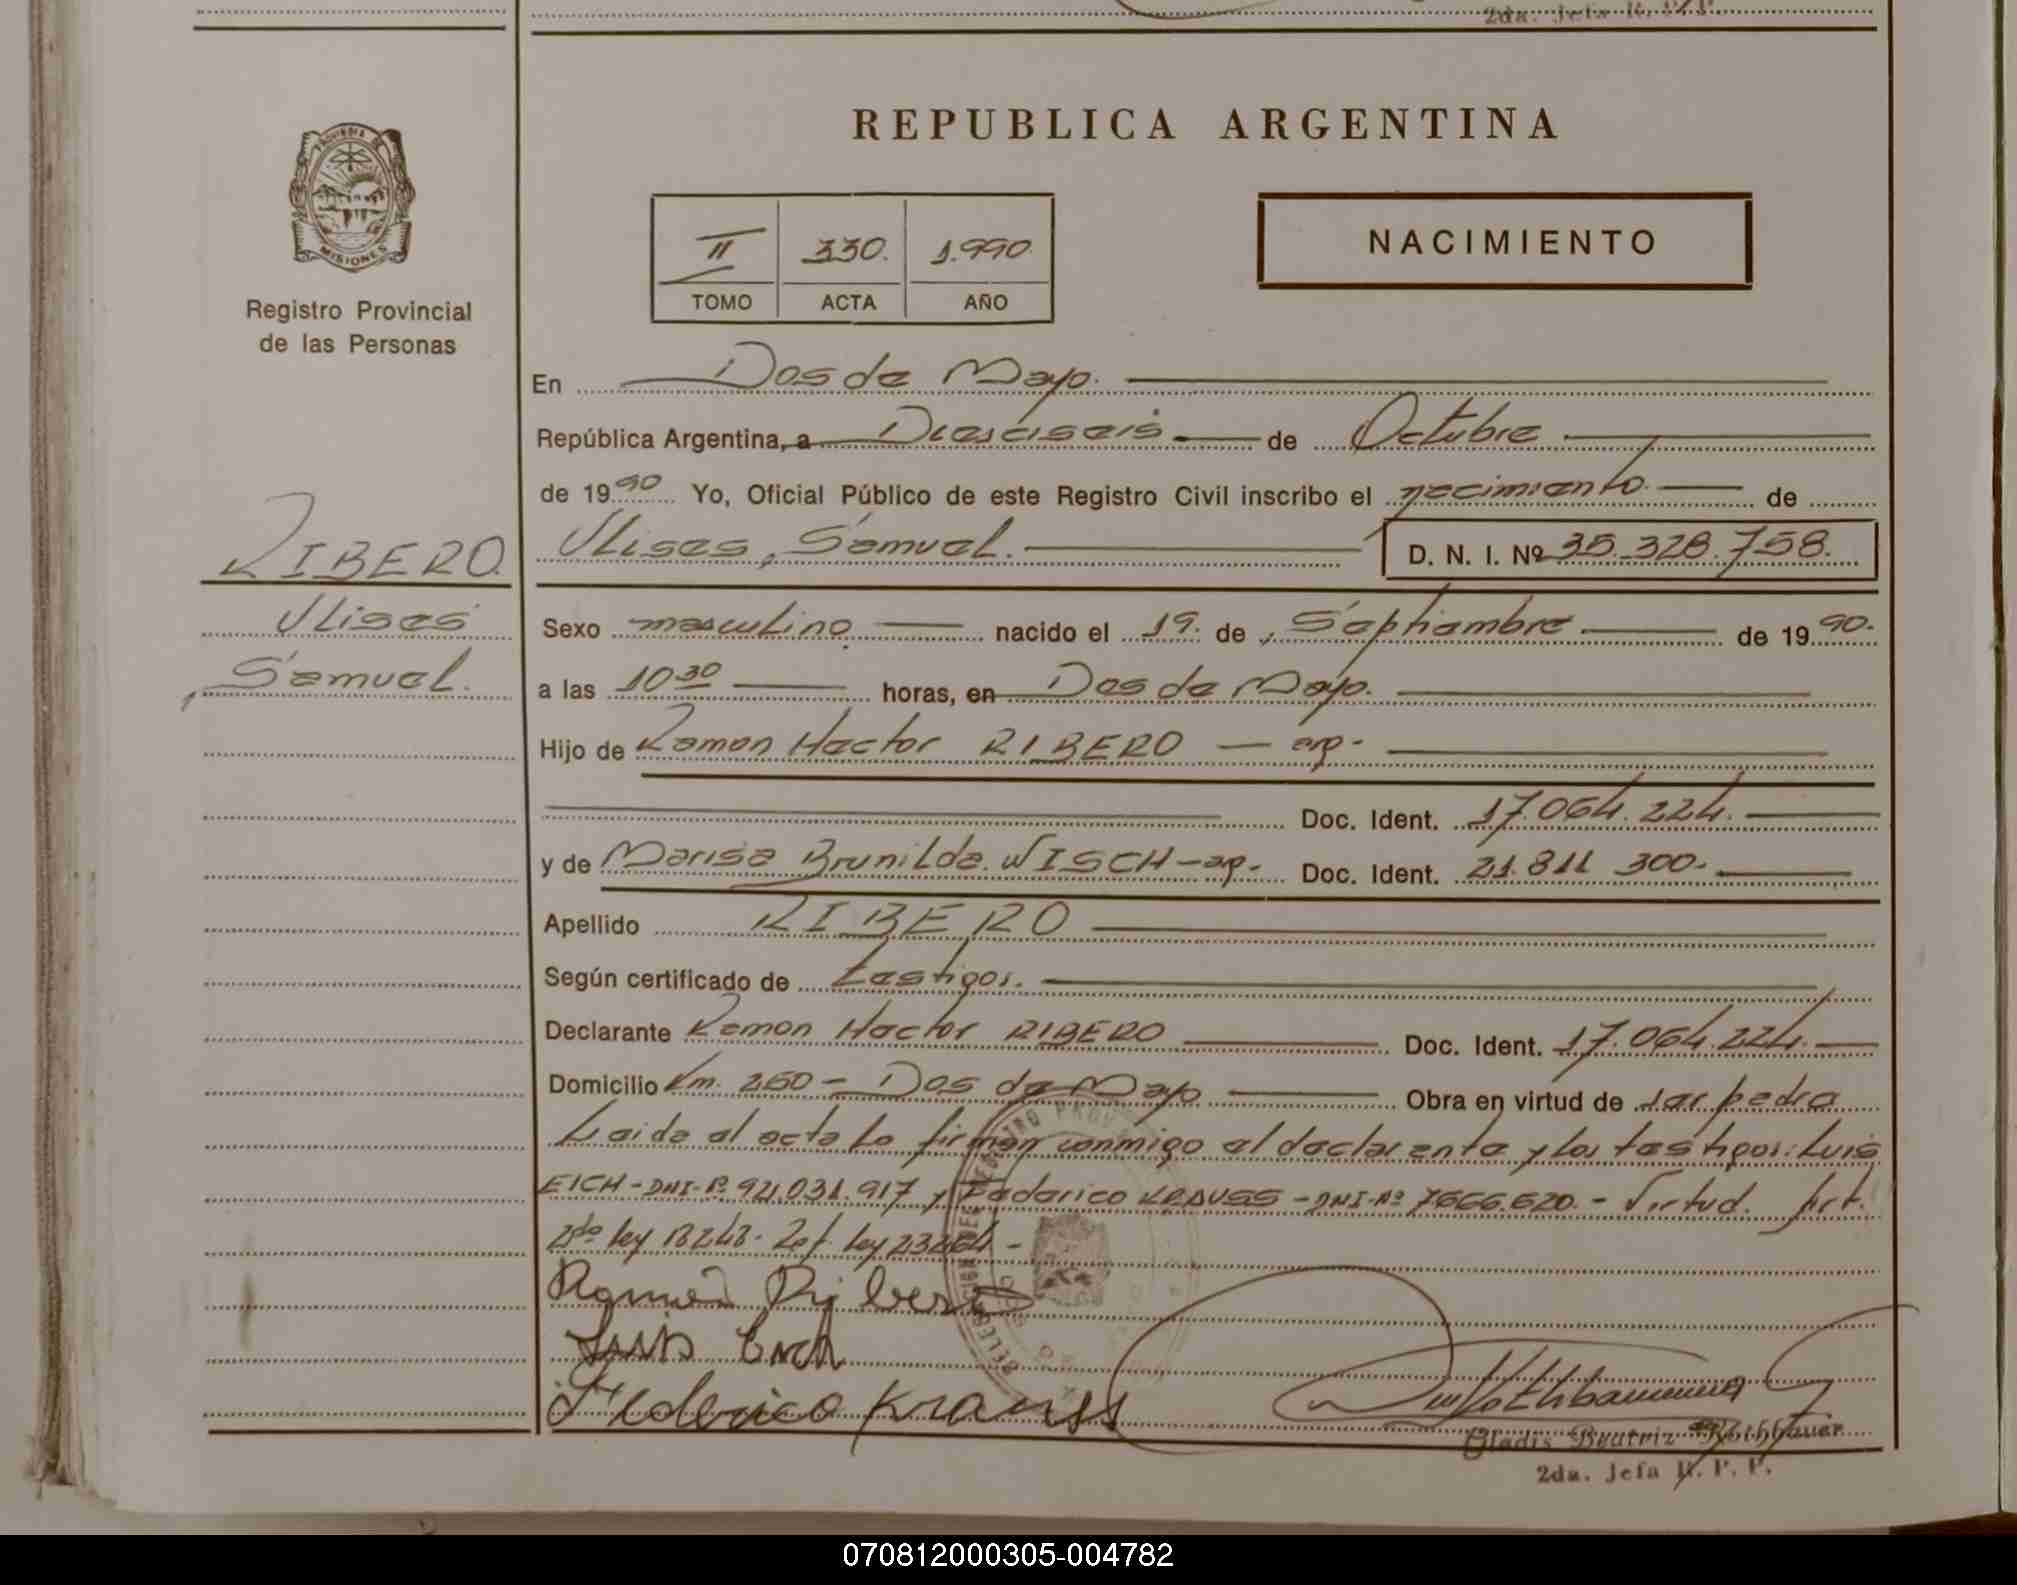 2da. Jefa R. P. P.
REPUBLICA ARGENTINA
PROVINCIA DE
MISIONES
Registro Provincial
de las Personas
II 330. 1.990.
TOMO ACTA AÑO
NACIMIENTO
En Dos de Mayo.
República Argentina, a Dieciseis de Octubre
de 1990 Yo, Oficial Público de este Registro Civil inscribo el nacimiento de
Ulises, Samuel. D. N. I. Nº 35.328.758.
RIBERO.
Ulises
Samuel.
Sexo masculino nacido el 19. de Septiembre de 1990.
a las 10 30 horas, en Dos de Mayo.
Hijo de Ramon Hector RIBERO - arg-
Doc. Ident. 17.064.224.
y de Marisa Brunilda. WISCH - arg. Doc. Ident. 21.811 300.
Apellido RIBERO
Según certificado de testigos.
Declarante Ramon Hector RIBERO Doc. Ident. 17.064.224.
Domicilio Km. 260 - Dos de Mayo Obra en virtud de ser padre
Leida el acta la firman conmigo el declarante y los testigos: Luis
EICH - DNI-Nº 92.031.917 y Federico KRAUSS - DNI-Nº 7666.620. - Virtud. Art.
2do ley 18248- Ref. ley 23264 -
Ramon Ribero
Luis Eich
Federico Krauss
Gladis Beatriz Rothbauer
2da. Jefa R. P. P.
070812000305-004782